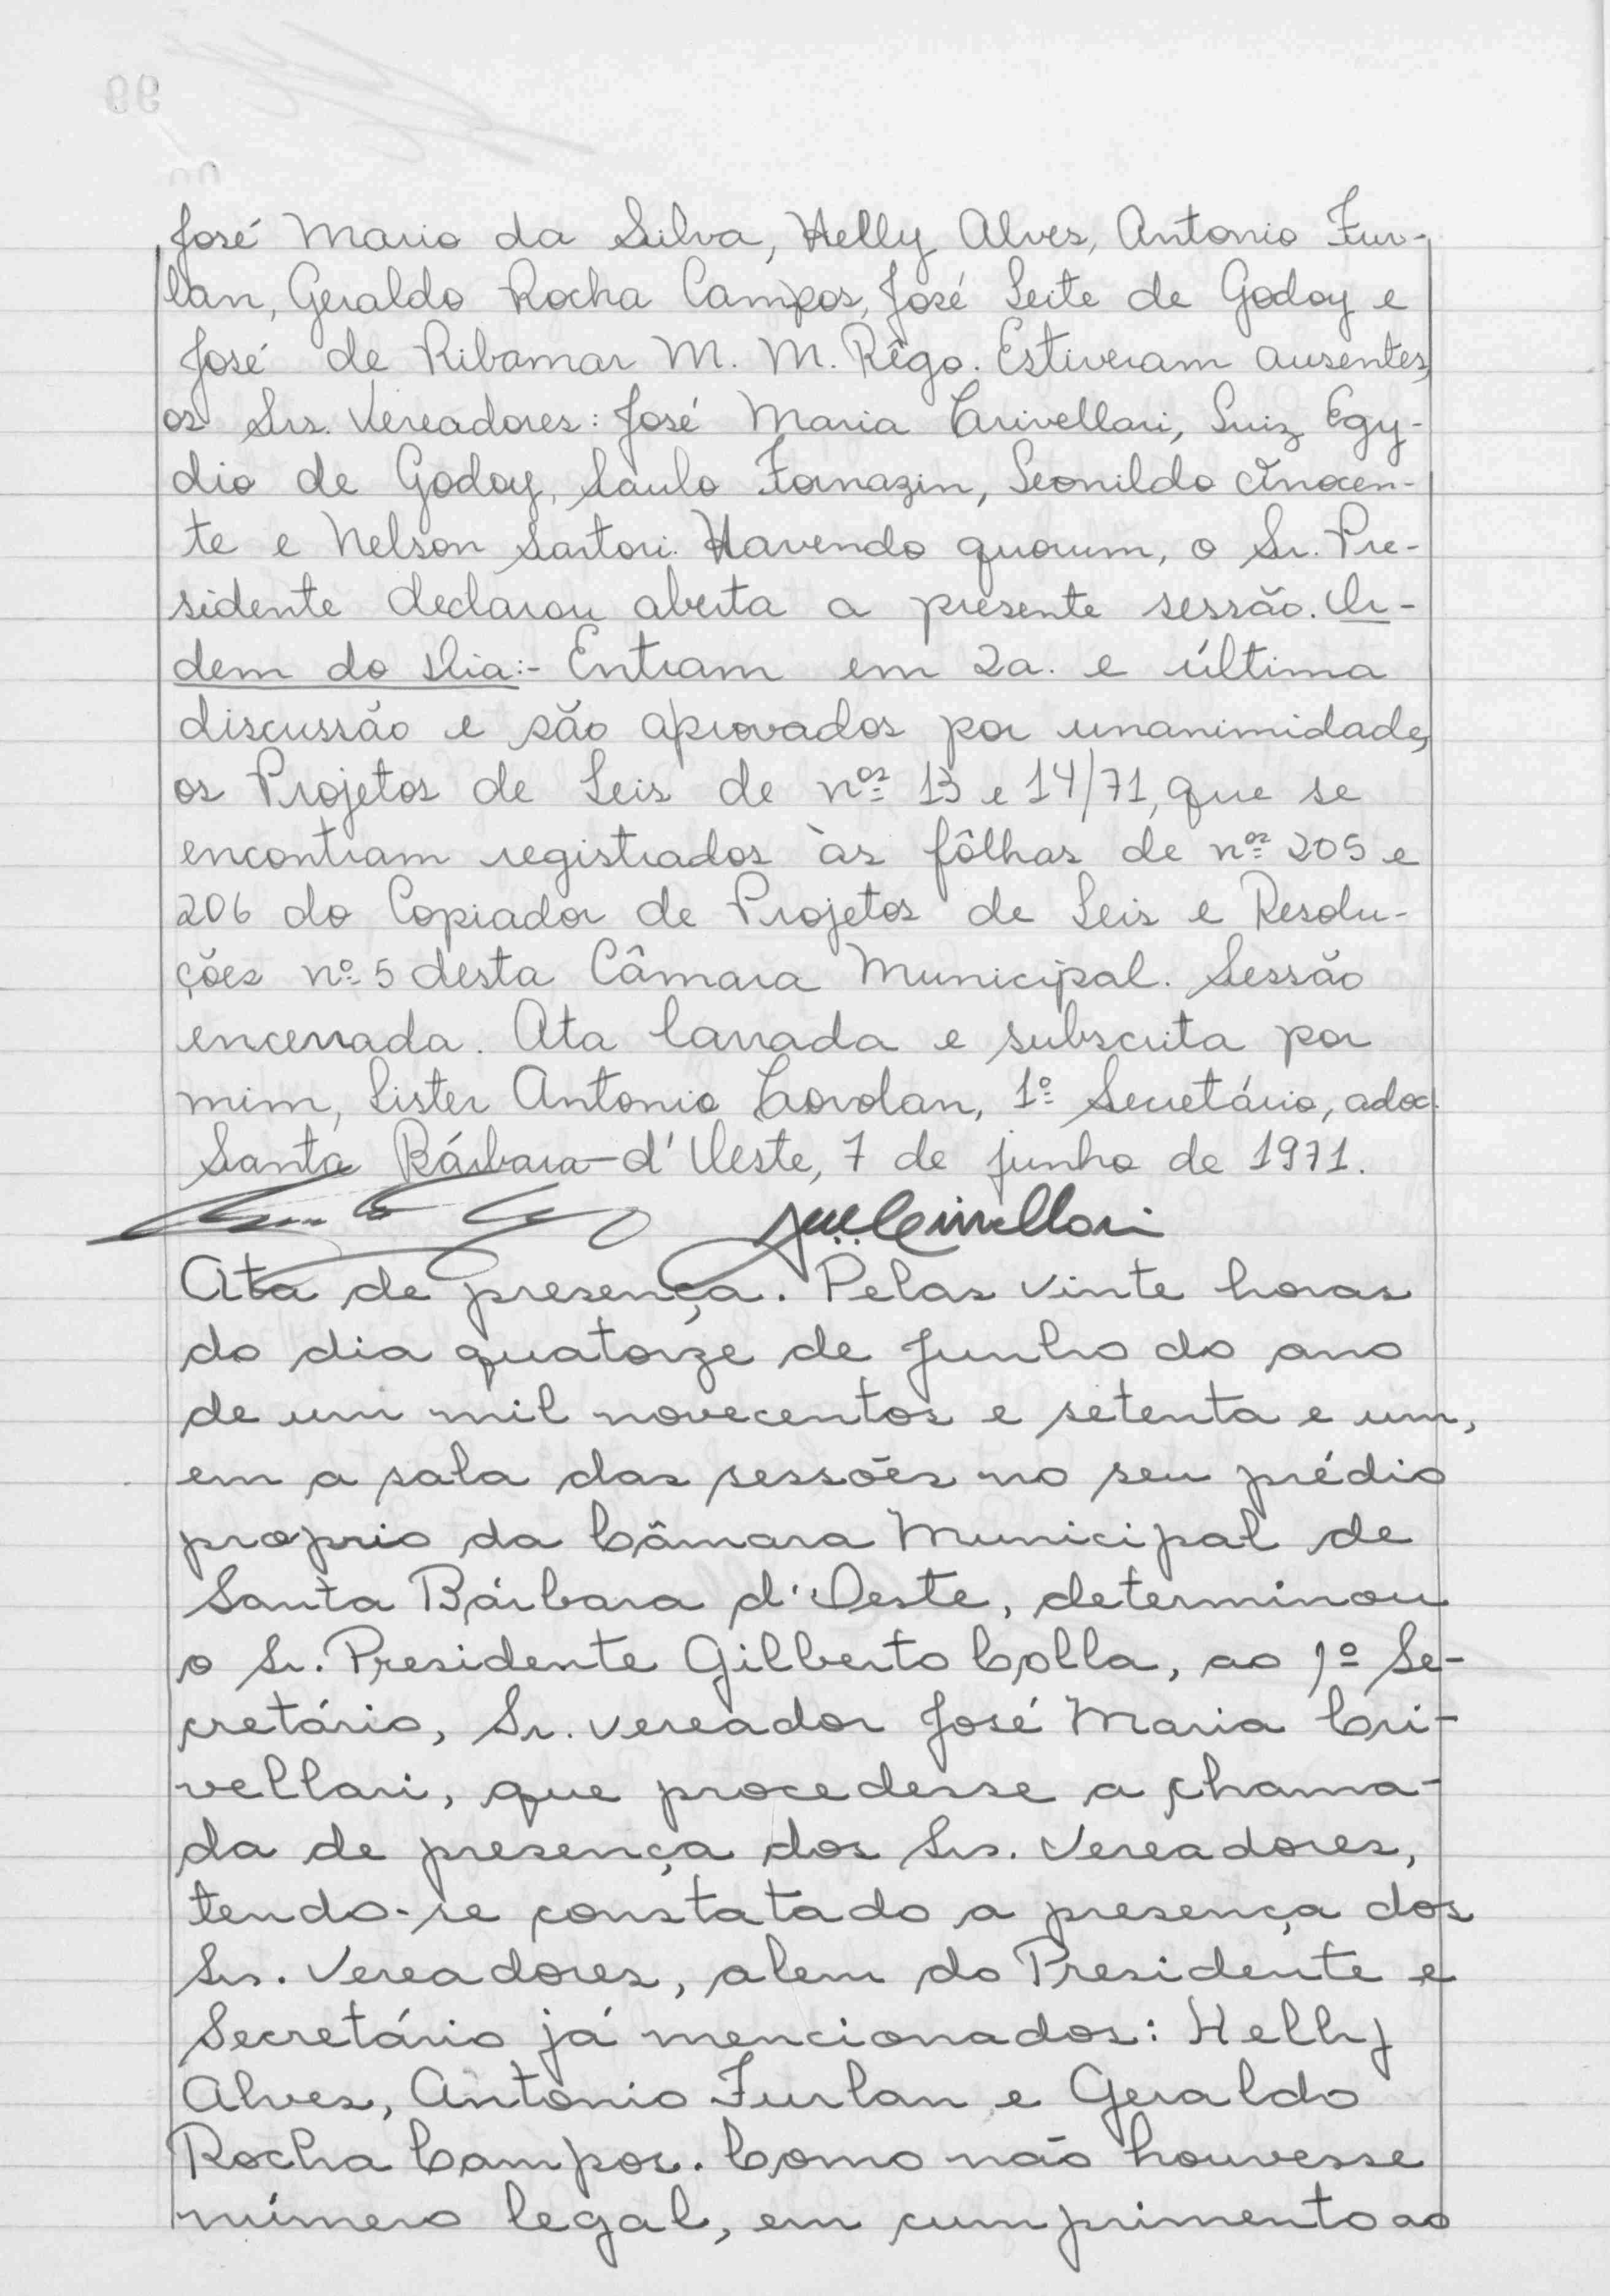 José Mario da Silva, Helly Alves, Antonio Fur-
lan, Geraldo Rocha Campos, José Leite de Godoy e
José de Ribamar M. M. Rêgo. Estiveram ausentes,
os Srs. Vereadores: José Maria Crivellari, Luiz Egy-
dio de Godoy, Saulo Fornazin, Leonildo Inocen-
te e Nelson Sartori. Havendo quorum, o Sr. Pre-
sidente declarou aberta a presente sessão. Or-
dem do Dia:- Entram em 2a. e última
discussão e são aprovados por unanimidade,
os Projetos de Leis de nos 13 e 14/71, que se
encontram registrados às fôlhas de nos 205 e
206 do Copiador de Projetos de Leis e Resolu-
ções nº 5 desta Câmara Municipal. Sessão
encerrada. Ata lavrada e subscrita por
mim, Lister Antonio Covolan, 1º Secretário, adoc.
Santa Bárbara-d'Oeste, 7 de junho de 1971.
Crivellari
Ata de presença. Pelas vinte horas
do dia quatorze de Junho do ano
de um mil novecentos e setenta e um,
em a sala das sessões no seu prédio
proprio da Câmara Municipal de
Santa Bárbara d'Oeste, determinou
o Sr. Presidente Gilberto Colla, ao 1º Se-
cretário, Sr. vereador José Maria Cri-
vellari, que procedesse a chama-
da de presença dos Srs. Vereadores,
tendo-se constatado a presença dos
Srs. Vereadores, alem do Presidente e
Secretário já mencionados: Helly
Alves, Antonio Furlan e Geraldo
Rocha Campos. Como não houvesse
número legal, em cumprimento ao